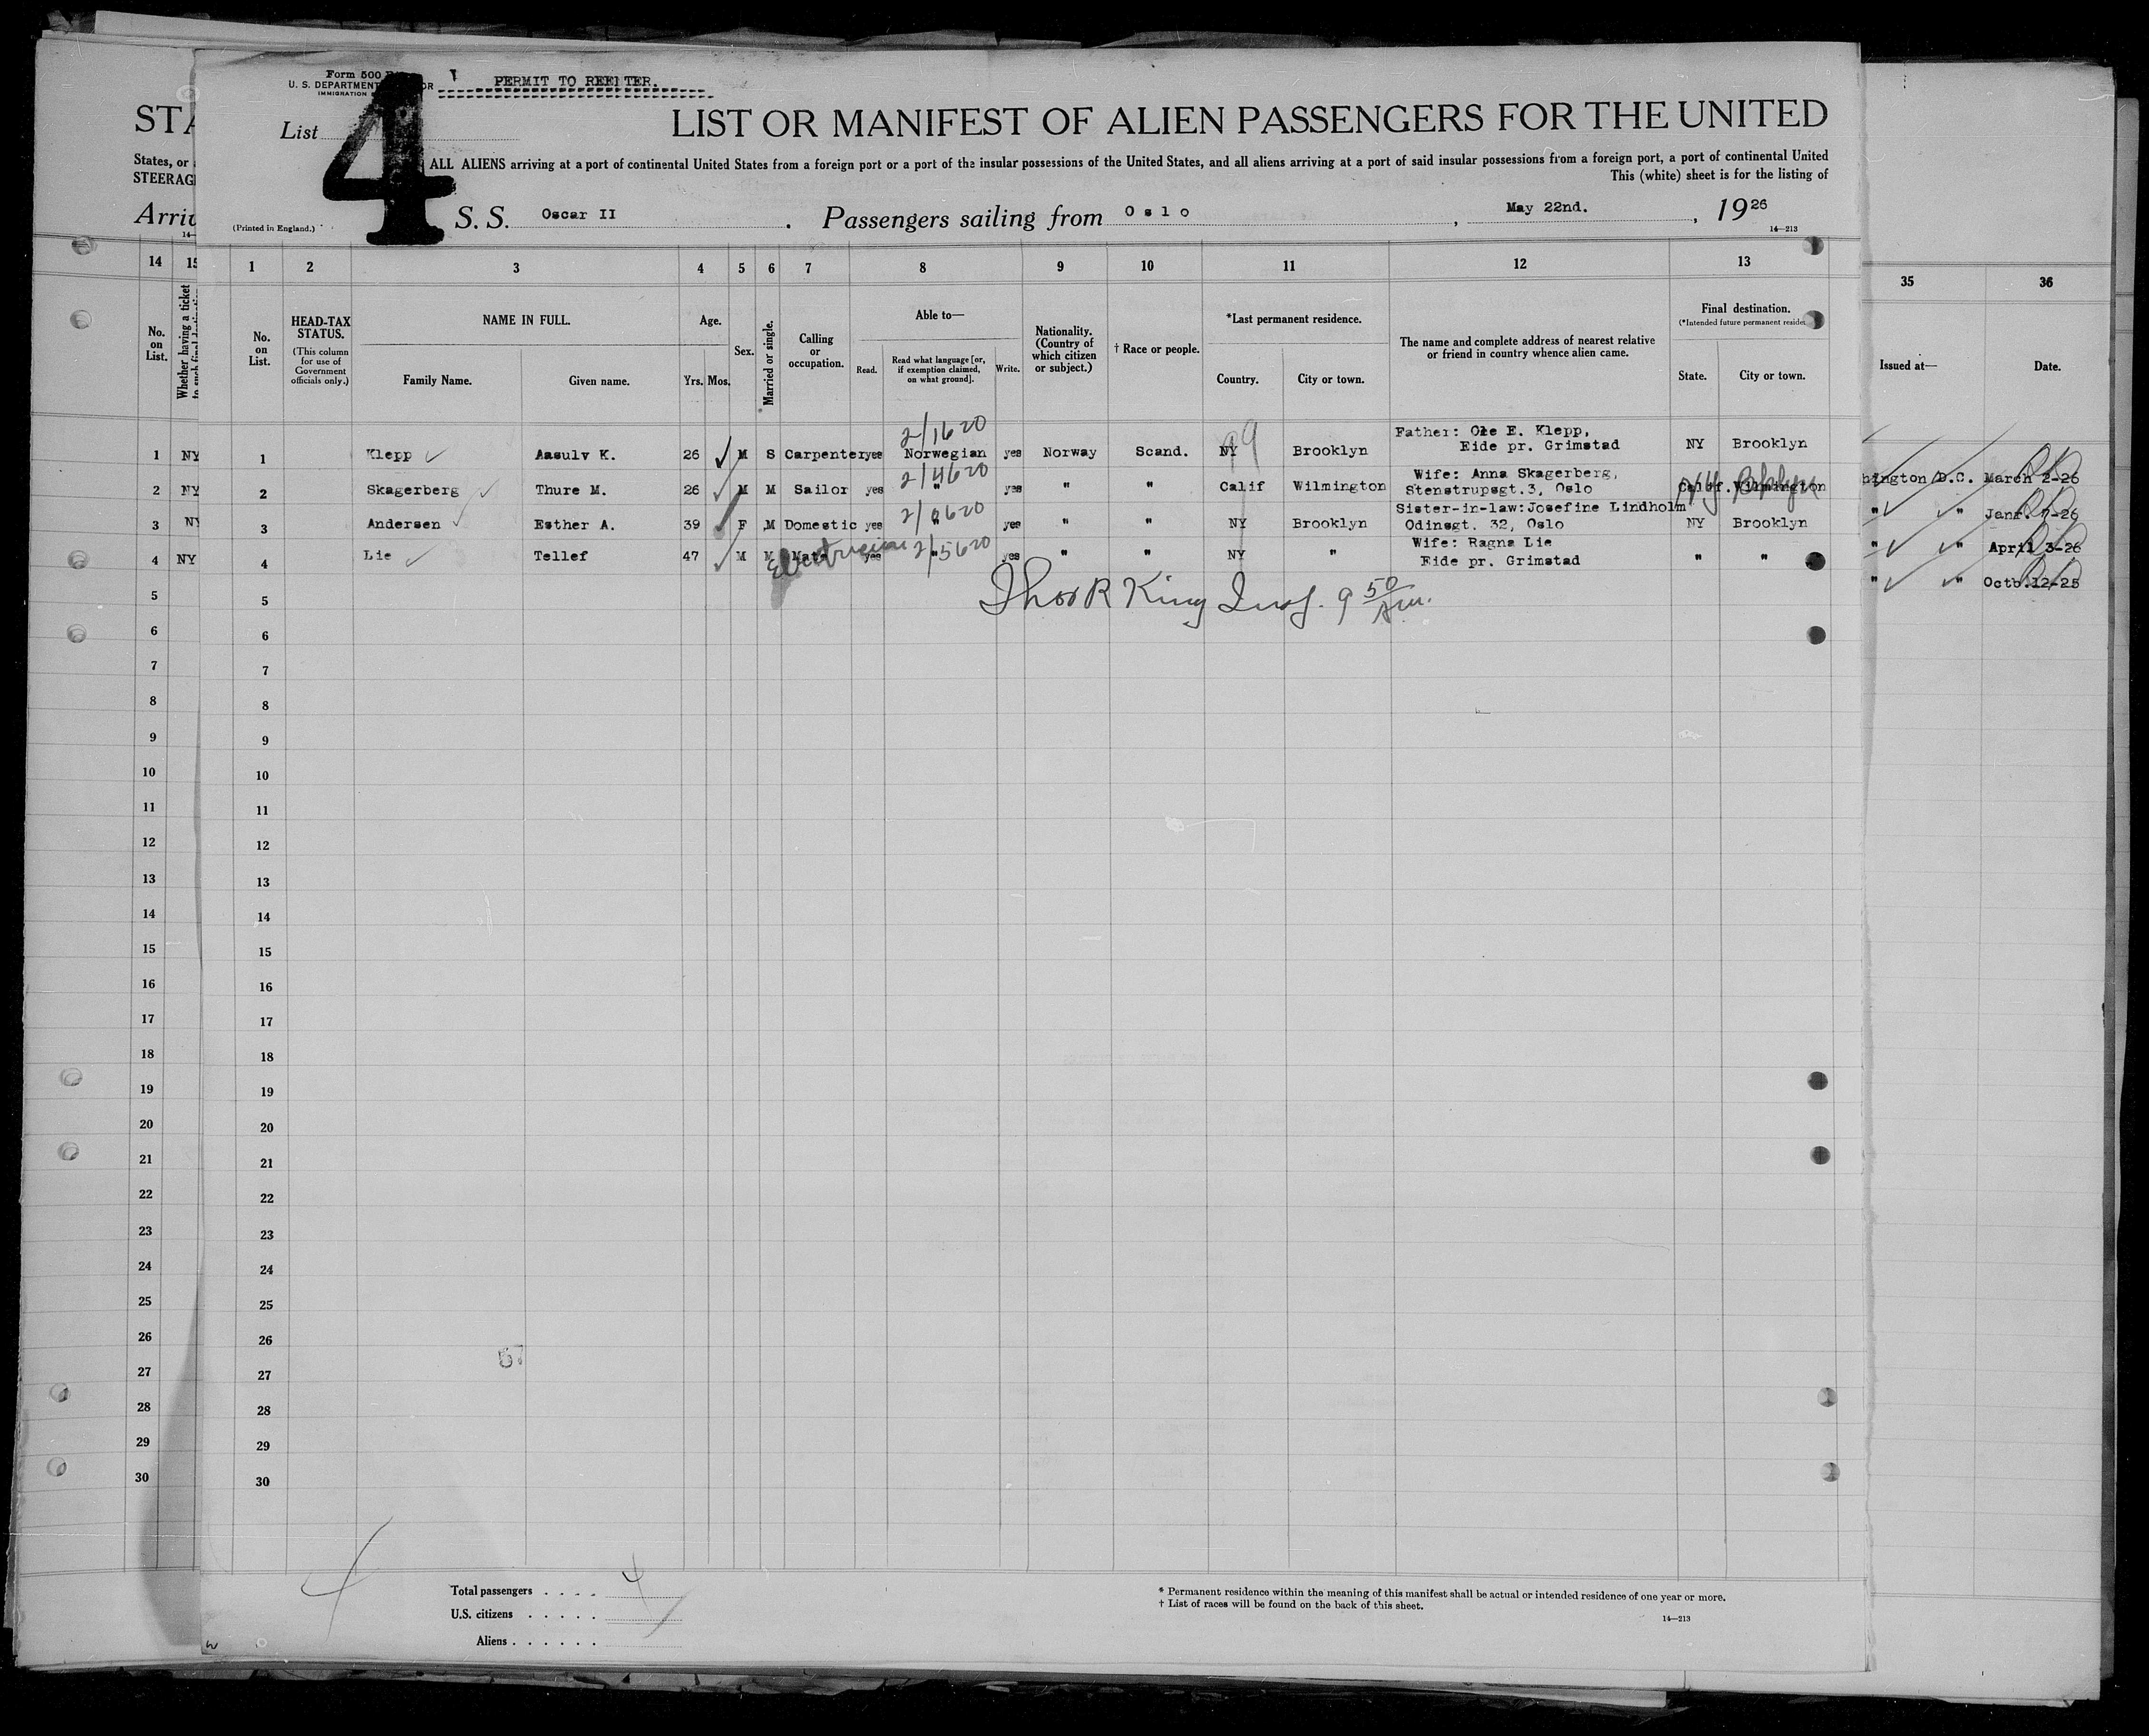 Form 500
U. S. DEPARTMENT
IMMIGRATION
PERMIT TO REENTER.
List 4
LIST OR MANIFEST OF ALIEN PASSENGERS FOR THE UNITED
STA
States, or
STEERAG
ALL ALIENS arriving at a port of continental United States from a foreign port or a port of the insular possessions of the United States, and all aliens arriving at a port of said insular possessions from a foreign port, a port of continental United
This (white) sheet is for the listing of
Arriv
(Printed in England.)
S. S. Oscar II. Passengers sailing from Oslo, May 22nd., 1926
14—213
14 15 1 2 3 4 5 6 7 8 9 10 11 12 13 35 36
No. on List.
Whether having a ticket
No. on List.
HEAD-TAX STATUS.
(This column for use of Government officials only.)
NAME IN FULL.
Family Name.
Given name.
Age.
Yrs. Mos.
Sex.
Married or single.
Calling or occupation.
Able to—
Read.
Read what language [or, if exemption claimed, on what ground].
Write.
Nationality. (Country of which citizen or subject.)
† Race or people.
*Last permanent residence.
Country.
City or town.
The name and complete address of nearest relative or friend in country whence alien came.
Final destination.
(*Intended future permanent resider
State.
City or town.
Issued at—
Date.
2/1620
Father: Ole E. Klepp,
1 NY 1 Klepp Aasulv K. 26 M S Carpenter yes Norwegian yes Norway Scand. NY Brooklyn Eide pr. Grimstad NY Brooklyn hington D.C. March 2-26
2/4620
Wife: Anna Skagerberg,
2 NY 2 Skagerberg Thure M. 26 M M Sailor yes " yes " " Calif Wilmington Stenstrupsgt.3, Oslo Calif. Wilmington NY Bklyn " " Janr. 7-26
Sister-in-law: Josefine Lindholm
3 NY 3 Andersen Esther A. 39 F M Domestic yes " yes " " NY Brooklyn Odinsgt. 32, Oslo NY Brooklyn " " April 3-26
Wife: Ragna Lie
4 NY 4 Lie Tellef 47 M M Mate Electrician yes " 2/5620 yes " " NY " Eide pr. Grimstad " " " " Octb.12-25
5 5 Thos R King Insp. 9 50 Am.
6 6
7 7
8 8
9 9
10 10
11 11
12 12
13 13
14 14
15 15
16 16
17 17
18 18
19 19
20 20
21 21
22 22
23 23
24 24
25 25
26 26
27 27
28 28
29 29
30 30
Total passengers . . . . 4
U.S. citizens . . . . .
Aliens . . . . . .
* Permanent residence within the meaning of this manifest shall be actual or intended residence of one year or more.
† List of races will be found on the back of this sheet.
14—213